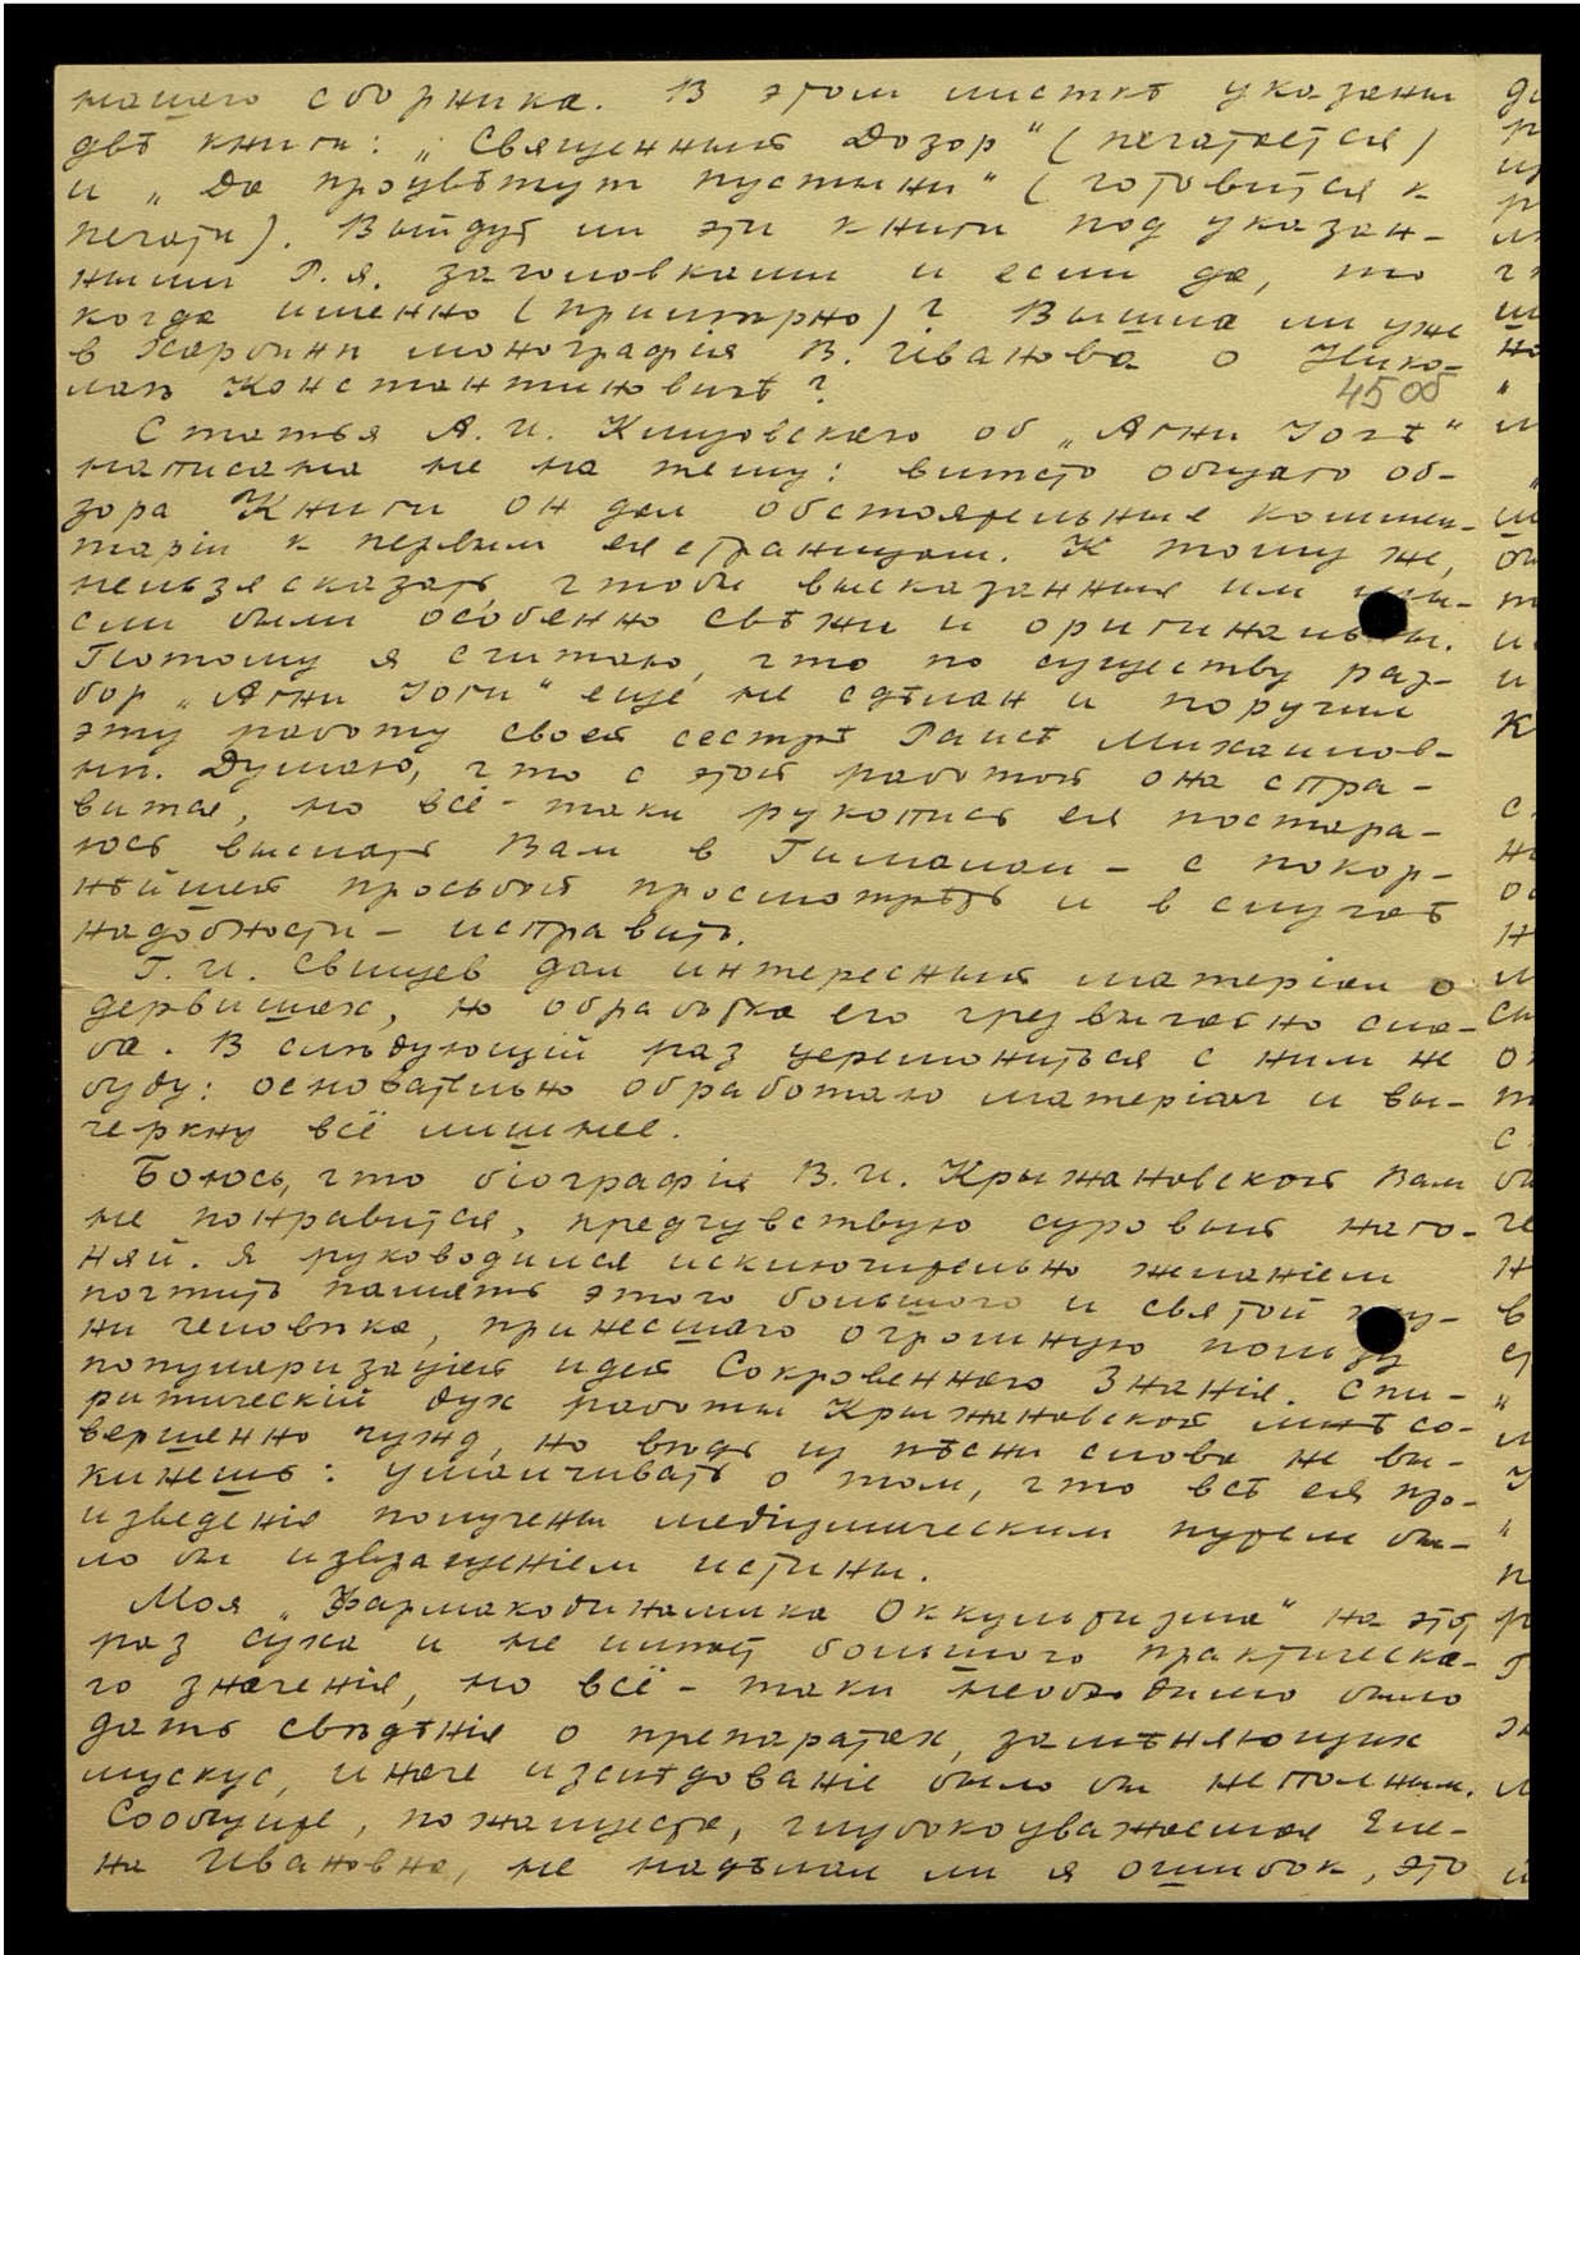 нашего сборника. В этом листкѣ указаны
двѣ книги: „Священный Дозор“ (печатается)
и „Да процвѣтут пустыни“ (готовится к
печати). Выйдут ли эти книги под указан-
ными Р.Я. заголовками и если да, то
когда именно (примѣрно)? Вышла ли уже
в Харбинѣ монографія В. Иванова о Нико-
лаѣ Константиновичѣ?
45 об
Статья А.И. Клизовскаго об „Агни Iогѣ“
написана не на тему: вмѣсто общаго об-
зора Книги он дал обстоятельные коммен-
таріи к первым ея страницам. К тому же,
нельзя сказать, чтобы высказанныя им мы-
сли были особенно свѣжи и оригинальны.
Потому я считаю, что по существу раз-
бор „Агни Iоги“ еще не сдѣлан и поручил
эту работу своей сестрѣ Раисѣ Михайлов-
нѣ. Думаю, что с этой работой она спра-
вится, но всё-таки рукопись ея постара-
юсь выслать Вам в Гималаи – с покор-
нѣйшей просьбой просмотрѣть и в случаѣ
надобности – исправить.
Г.И. Свищев дал интересный матеріал о
дервишах, но обработка его чрезвычайно сла-
ба. В слѣдующій раз церемониться с ним не
буду: основательно обработаю матеріал и вы-
черкну всё лишнее.
Боюсь, что біографія В.И. Крыжановской Вам
не понравится, предчувствую суровый наго-
няй. Я руководился исключительно желаніем
почтить память этого большого и святой жиз-
ни человѣка, принесшаго огромную пользу
популяризаціей идей Сокровеннаго Знанія. Спи-
ритическій дух работы Крыжановской мнѣ со-
вершенно чужд, но вѣдь из пѣсни слова не вы-
кинешь: умалчивать о том, что всѣ ея про-
изведенія получены медіумическим путем бы-
ло бы извращеніем истины.
Моя „Фармакодинамика Оккультизма“ на этот
раз суха и не имѣет большого практическа-
го значенія, но всё-таки необходимо было
дать свѣдѣнія о препаратах, замѣняющих
мускус, иначе изслѣдованіе было бы неполным.
Сообщите, пожалуйста, глубокоуважаемая Еле-
на Ивановна, не надѣлал ли я ошибок, это